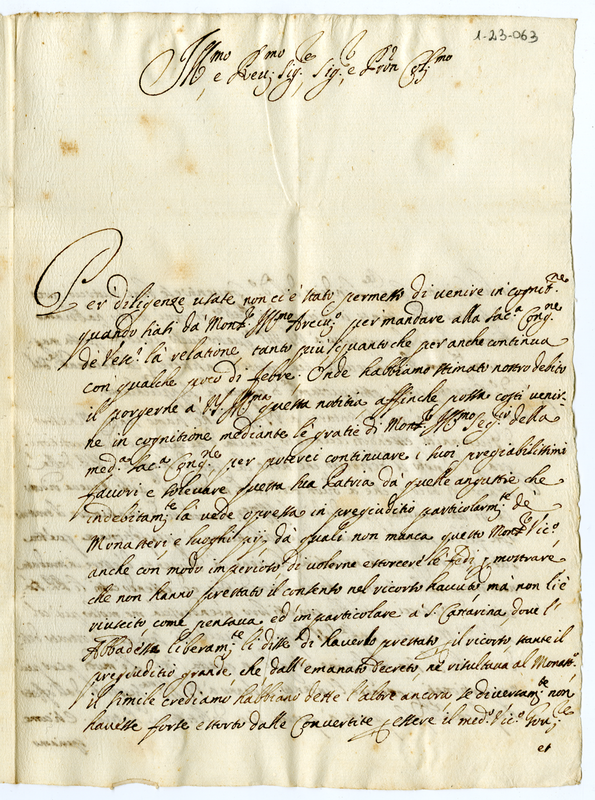 1-23-063
Ill.mo e Rev.mo Sig.re Sig.re e Pron Col.mo
Per diligenze usate non ci è stato permesso di venire in cognit.ne
quando hati da Mons.r Ill.mo Arciv.o per mandare alla Sac.a Cong.ne
de Vesc.i la relatione, tanto più quanto che per anche continua
con qualche poco di febre. Onde habbiamo stimato nostro debito
il porgerne à VS Ill.ma questa notitia affinche possa costì venir-
ne in cognitione mediante le gratie di Mons.r Ill.mo Seg.rio della
med.a Sac.a Cong.ne per poterci continuare i suoi pregiabilissimi
favori e solevare questa sua Patria da quelle angustie che
indebitam.te la vede opressa in pregiuditio particolarm.te de
Monasteri e luoghi pij, da quali non manca questo Mons.r Vic.o
anche con modo imperioso di volerne estorcere le fedi p mostrare
che non hanno prestato il consenso nel ricorso havuto, mà non li è
riuscito come pensava ed in particolare à S. Cattarina dove l'
Abbadessa liberam.te li disse di haverlo prestato, il ricorso, stante il
pregiuditio grande, che dall'emanato Decreto ne risultava al Monast.o
il simile crediamo habbiano dette l'altre ancora se diversam.te non
havesse forse estorto dalle Convertite p essere il med.o Vic.o
et